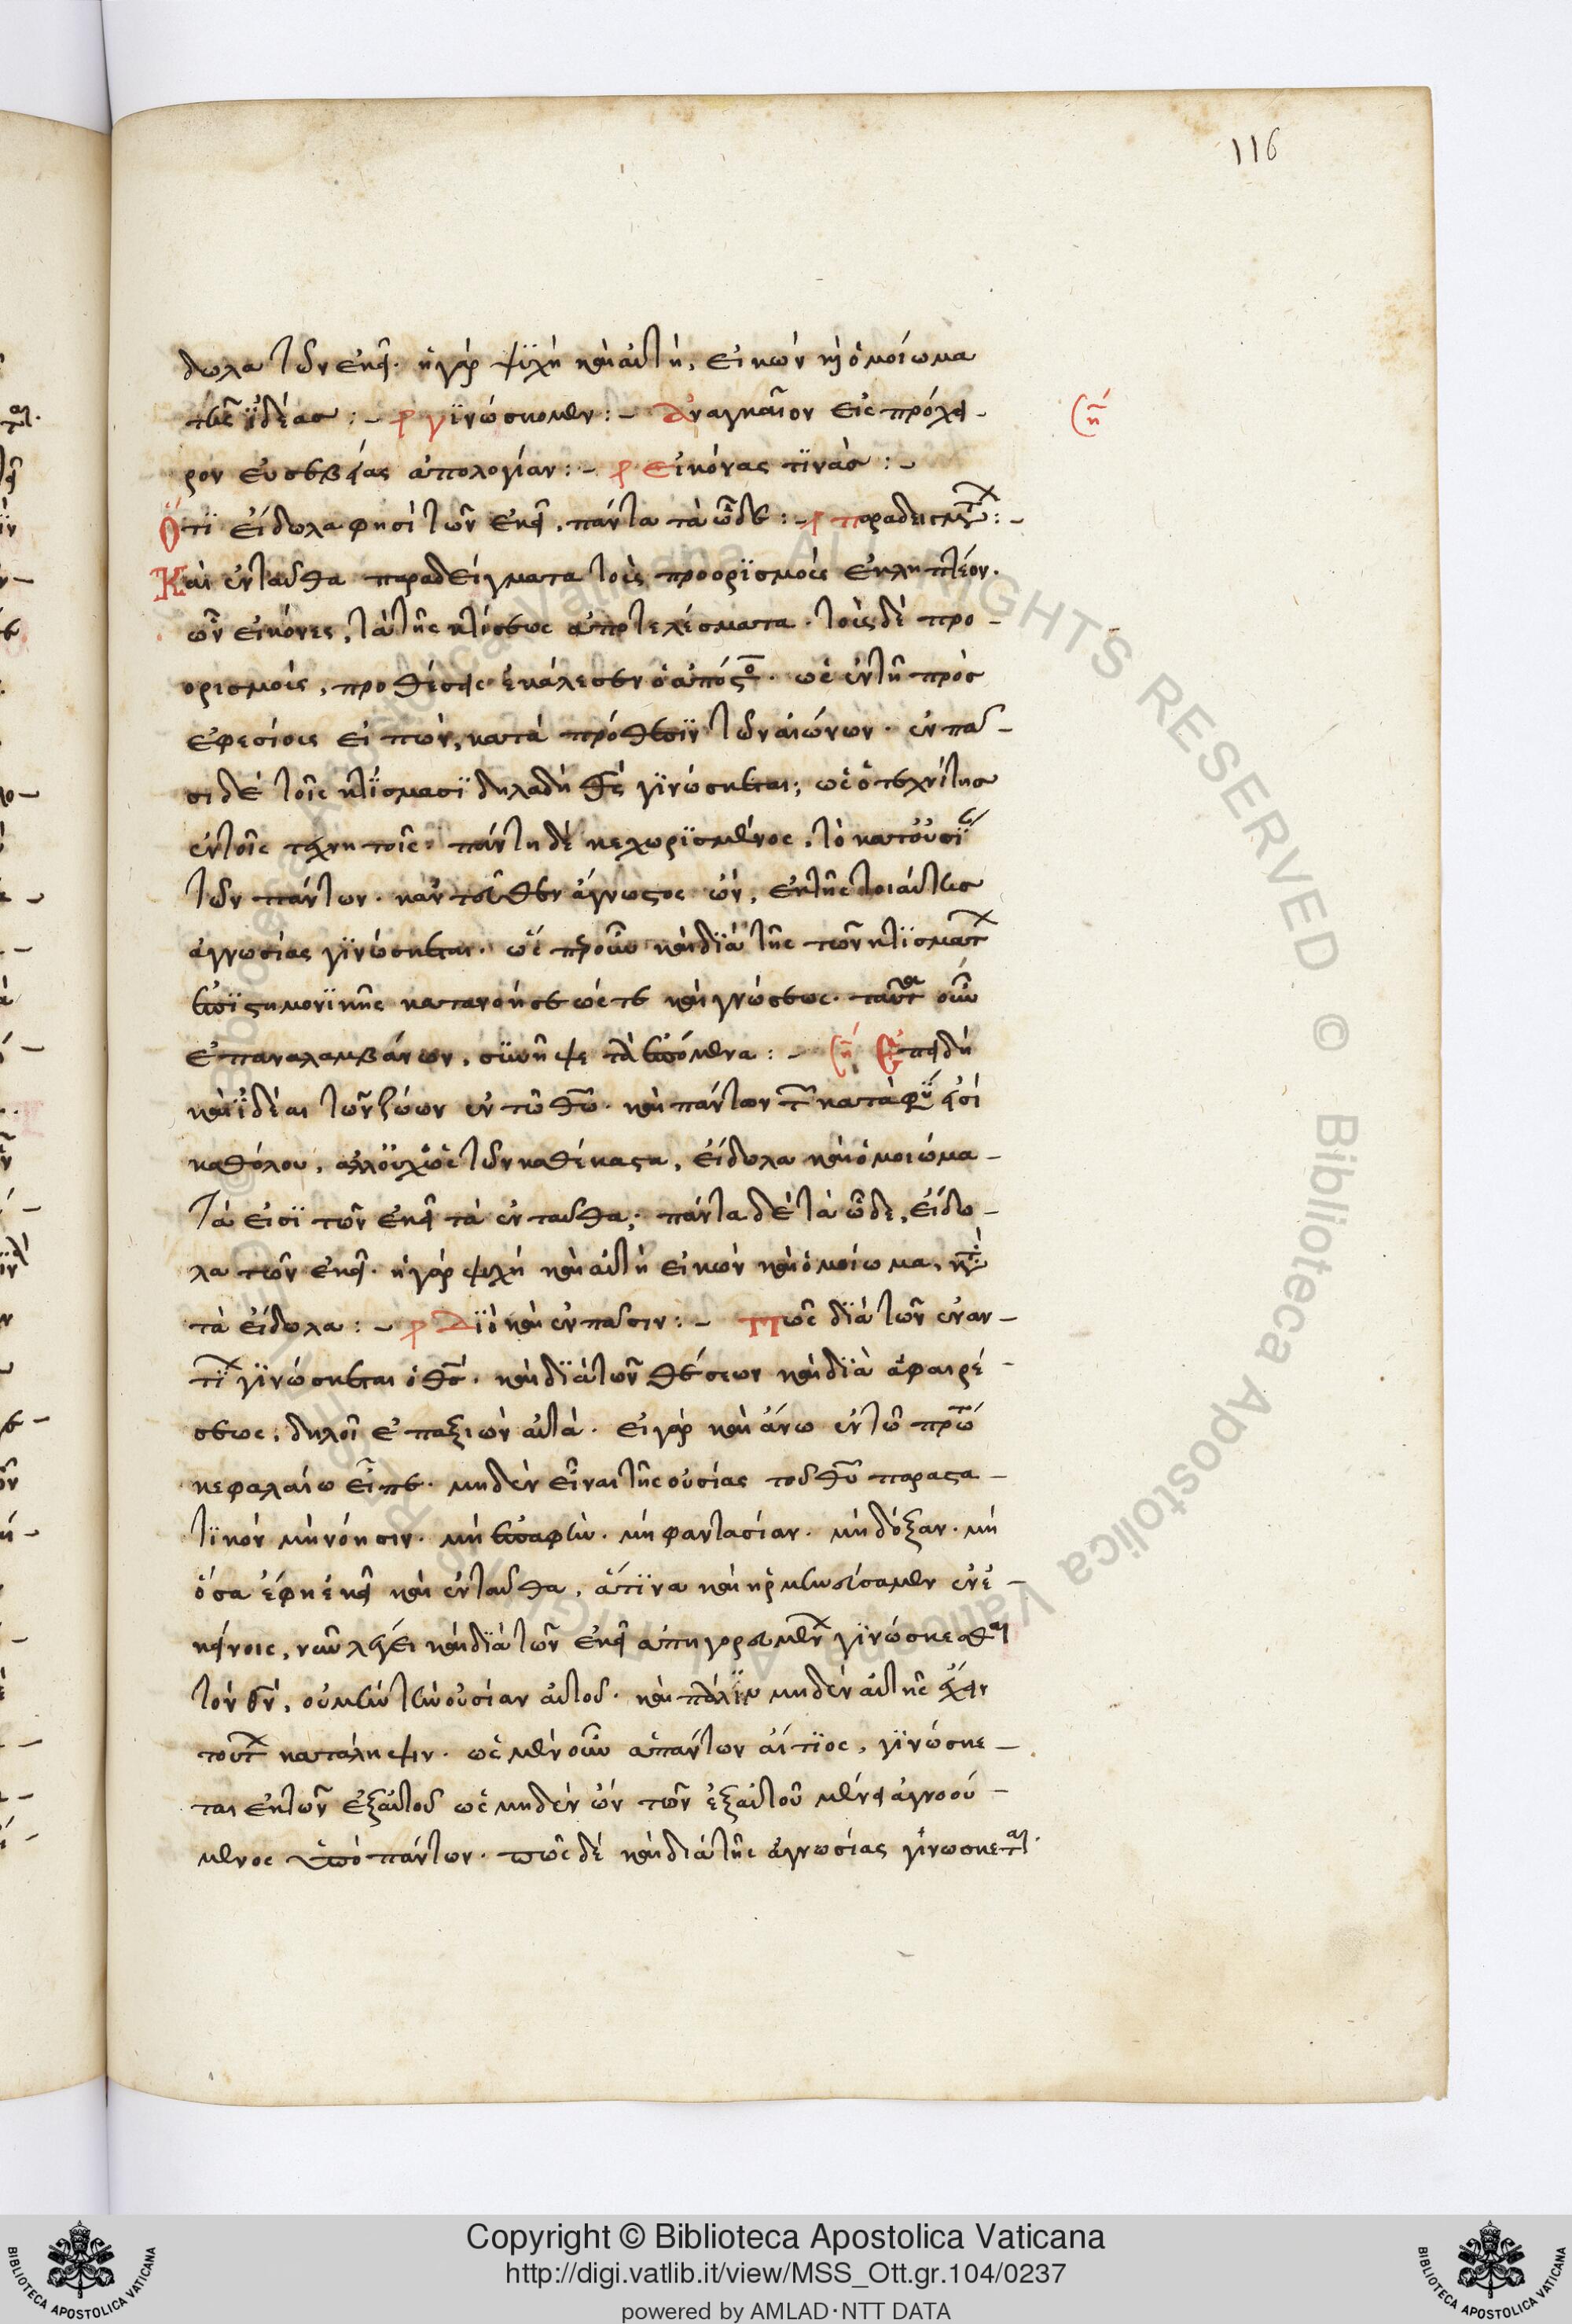 116
δωλα τῶν ἐκεῖ. ἡ γὰρ ψϋχὴ καὶ αὐτὴ, εἰκὼν κ) ὁμοίωμα
τῆς ϊδέας :- ρ γϊνώσκομεν :- Αναγκαῖον εἰς πρόχει- (η
ρον εὐσεβείας ἀπολογίαν :- ρ Εἰκόνας τϊνὰσ :-
Ὅτϊ εἴδωλα φησὶ τῶν ἐκεῖ, πάντα τὰ ὧδε :- ρ παραδειγμτ :-
Καὶ ἐνταῦθα παραδείγματα τοὺς προορϊσμοὺς ἐκλη πτέον.
ὧν εἰκόνες, τὰ τῆς κτίσεως ἀποτελέσματα. τοὺς δὲ προ-
ορισμοὺς, προθέσεις ἐκάλεσεν ὁ ἀπόστο. ὡς ἐν τῆ πρὸς
ἐφεσίους εἰπὼν, κατὰ πρόθεσϊν τῶν αἰώνων. ἐν πᾶ-
σι δὲ τοῖς κτίσμασϊ δηλαδὴ θς γϊνώσκεται, ὡς ὁ τεχνίτης
ἐν τοῖς τεχνητοῖς. πάντη δὲ κεχωρϊσμένος, τὸ κατουσϊ
τῶν πάντων. κἀν τοῦθεν ἄγνωστος ὢν, ἐκ τῆς τοιαύτης
ἀγνωσίας γϊνώσκεται. ὥσπερ οὖν καὶ δϊὰ τῆς τῶν κτϊσματ
ἐπϊστημονϊκῆς κατανοήσεώς τε καὶ γνώσεως. ταῦτα οὖν
ἐπαναλαμβάνων, σϋνῆψε τὰ ἑπόμενα :- (η Ἐπειδὴ
καὶ ϊδέαι τῶν ζώων ἐν τῶ θω. καὶ πάντων τ κατὰ φϋ εἰσὶ
καθόλου, ἀλλ οὐχ ὡς τῶν καθέκαστα, εἴδωλα καὶ ὁμοιώμα-
τά εἰσϊ τῶν ἐκεῖ τὰ ἐνταῦθα, πάντα δὲ τὰ ὧδε, εἴδω-
λα τῶν ἐκεῖ. ἡ γὰρ ψυχὴ καὶ αὐτὴ εἰκὼν καὶ ὁμοίωμα,
τὰ εἴδωλα :- ρ Δϊὸ καὶ ἐν πᾶσιν :- Πῶς δϊὰ τῶν ἐναν-
τϊ γϊνώσκεται ὁ θς. καὶ δϊὰ τῶν θέσεων καὶ δϊὰ ἀφαιρέ-
σεως, δηλοῖ ἐπαξιῶν αὐτά. εἰ γὰρ καὶ ἄνω ἐν τῶ πρώ
κεφαλαίω εἶπε. μηδὲν εἶναι τῆς οὐσίας τοῦ θυ παραστα-
τϊκὸν μὴ νόησιν. μὴ ἐπαφὴν. μὴ φαντασίαν. μὴ δόξαν. μὴ
ὅσα ἔφη ἐκεῖ καὶ ἐνταῦθα, ἅτϊνα καὶ ἡρμηνεύσαμεν ἐν ἐ-
κείνοις, νῦν λέγει καὶ δϊὰ τῶν ἐκεῖ ἀπηγορευμέν γϊνώσκεσθαι
τὸν θν, οὐ μὴν τὴν οὐσίαν αὐτοῦ. καὶ πάλϊν μηδὲν αὐτῆς ἔχειν
τούτ κατάληψιν. ὡς μὲν οὖν ἁπάντων αἴτϊος, γϊνώσκε-
ται ἐκ τῶν ἐξ αὐτοῦ ὡς μηδὲν ὢν τῶν ἐξ αὐτοῦ μένει ἀγνοού-
μενος ὑπὸ πάντων. πῶς δὲ καὶ διὰ τῆς ἀγνωσίας γϊνωσκεται.
Copyright © Biblioteca Apostolica Vaticana
http://digi.vatlib.it/view/MSS_Ott.gr.104/0237
powered by AMLAD·NTT DATA